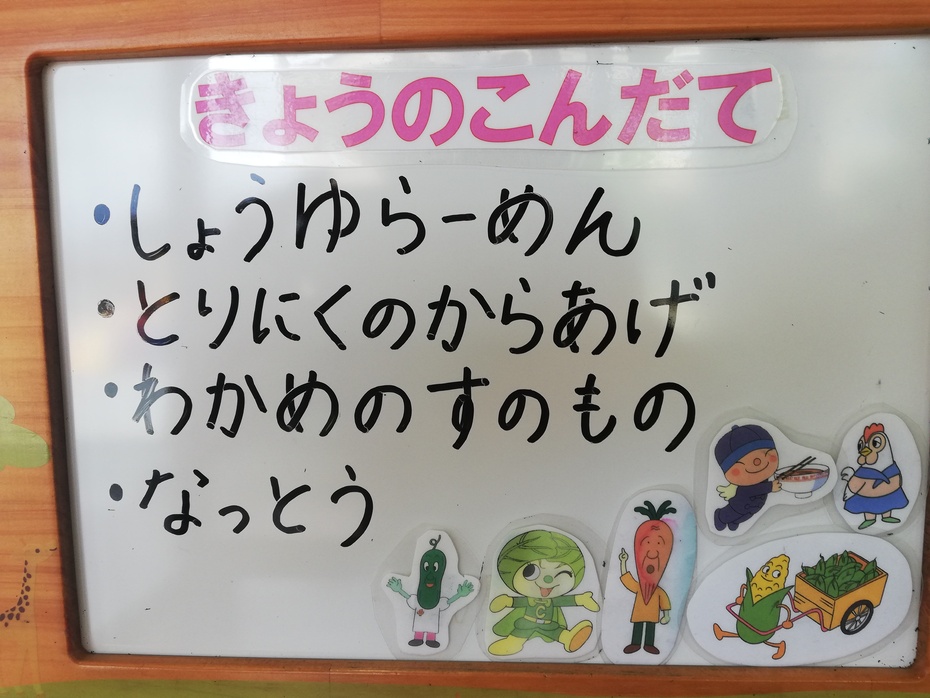 きょうのこんだて
・しょうゆらーめん
・とりにくのからあげ
・わかめのすのもの
・なっとう